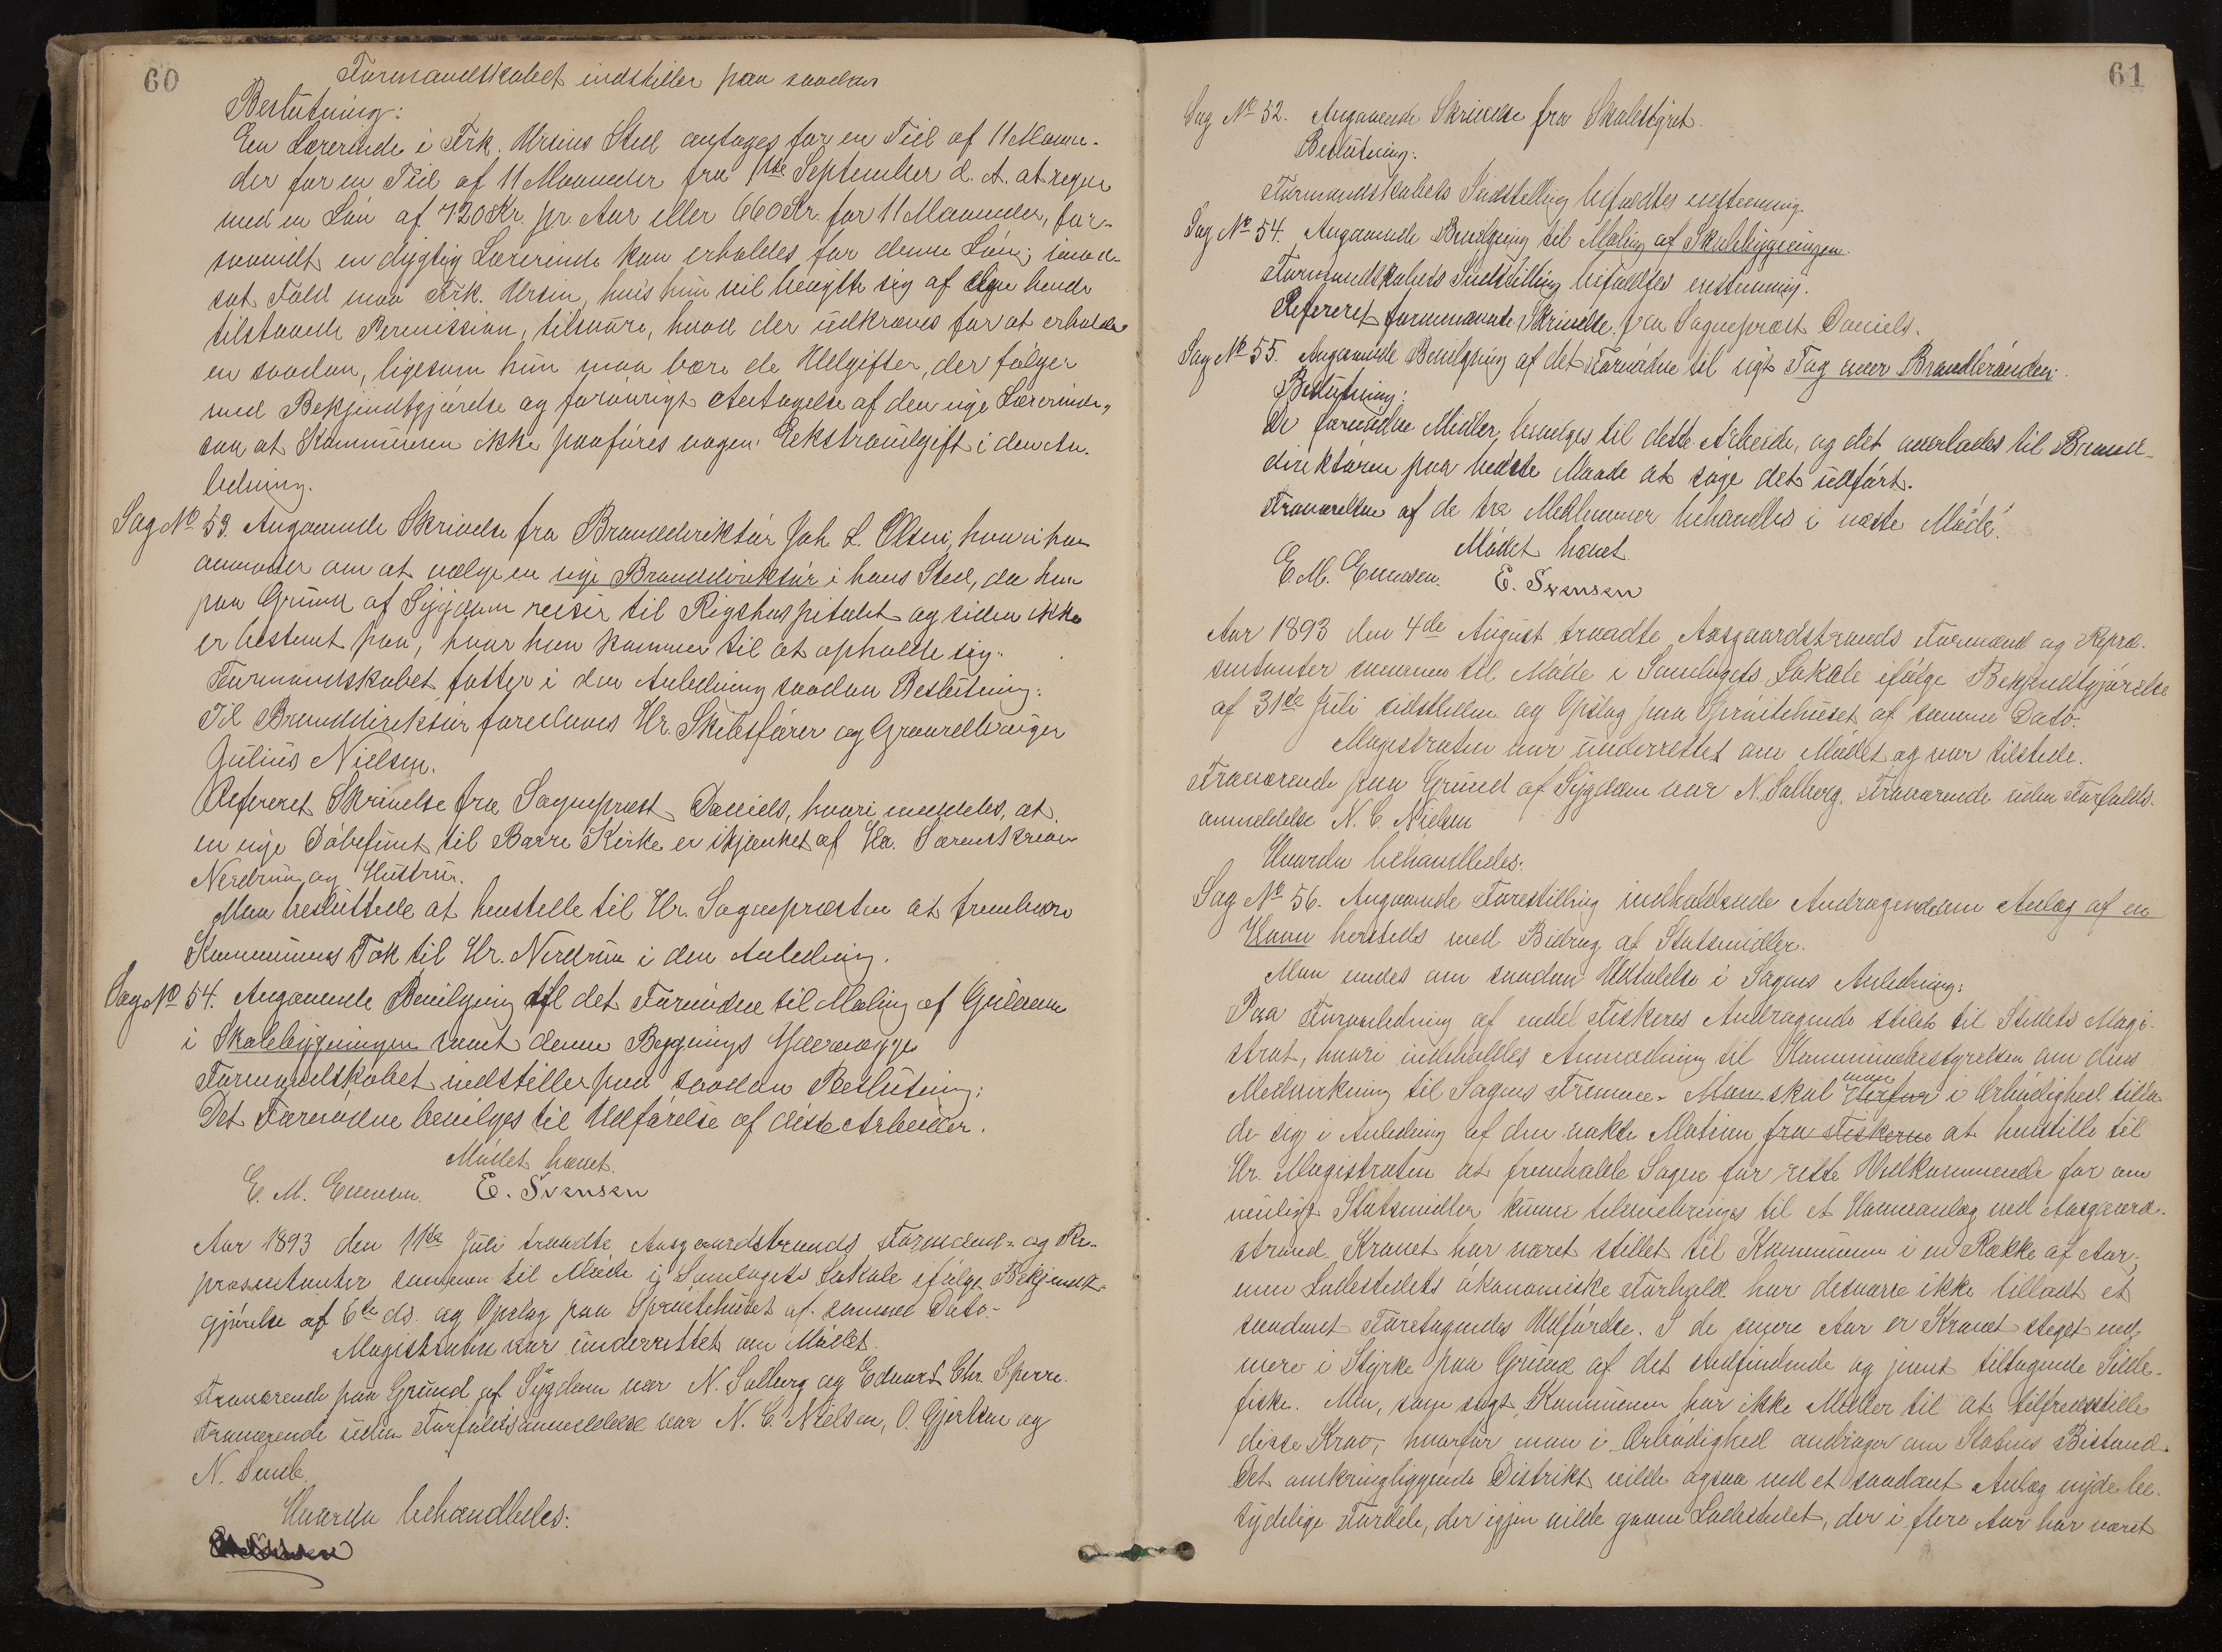 60
Formandskabet indstiller paa saadan
Beslutning:
En Lærerinde i Frk. Ursins Sted antages for en Tid af 11 Maane-
der for en Tid af 11 Maaneder fra 1ste September d. A. at regne
med en Løn af 720 Kr. pr. Aar eller 660 Kr. for 11 Maaneder, for-
saavidt en dygtig Lærerinde kan erholdes for denne Løn; i mod-
sat Fald maa Frk. Ursin, hvis hun vil benytte sig af den hende
tilstaaede Permission, tilsvare, hvad der udkræves for at erholde
en saadan, ligesom hun maa bære de Udgifter, der følger
med Bekjendtgjørelse og forøvrigt Antagelse af den nye Lærerinde,
saa at Kommunen ikke paaføres nogen Ekstraudgift i den An-
ledning.
Sag No 53. Angaaende Skrivelse fra Branddirektør Joh. L. Olsen, hvori han
anmoder om at vælge en nye Branddirektør i hans Sted, da han
paa Grund af Sygdom reiser til Rigshospitalet og siden ikke
er bestemt paa, hvor han kommer til at opholde sig.
Formandskabet fatter i den Anledning saadan Beslutning:
Til Branddirektør foreslaaes Hr. Skibsfører og
Julius Nielsen.
Refereret Skrivelse fra Sogneprest Daniels, hvori meddeles, at
en nye Døbefunt til Borre Kirke er skjænket af Hr. Sorenskriver
Nerdrum og Hustru.
Man besluttede at henstille til Hr. Sognepresten at frembære
Kommunens Tak til Hr. Nerdrum i den Anledning.
Sag No 54. Angaaende Bevilgning til det Fornødne til Maling af Gulvene
i Skolebygningen samt denne Bygnings Ydervægge
Formandskabet indstiller paa saadan Beslutning:
Det Fornødne bevilges til Udførelse af disse Arbeider.
Mødet hævet.
E. M. Evensen. E. Svensen
Aar 1893 den 11te Juli traadte Aasgaardstrands Formænd- og Re-
præsentanter sammen til Møde i Samlagets Lokale ifølge Bekjendt-
gjørelse af 6te ds. og Opslag paa Sprøitehuset af samme Dato.
Magistraten var underrettet om Mødet.
Fraværende paa Grund af Sygdom var N. Solberg og Edvard Chr. Sperre.
Fraværende uden Forfaldsanmeldelse var N. C. Nielsen, O. Gjertsen og
N. Semb.
Hvorda behandledes:
61
Sag No 52. Angaaende Skrivelse fra Skolestyret.
Beslutning:
Formandskabets Indstilling bifaldtes enstemmig.
Sag No 54. Angaaende Bevilgning til Maling af Skolebygningen.
Formandskabets Indstilling bifaldtes enstemmig.
Refereret formeenende Skrivelse fra Sogneprest Daniels.
Sag No 55. Angaaende Bevilgning af det Fornødne til nyt Tag over Brandbrønden.
Beslutning:
De fornødne Midler bevilges til dette Arbeide, og det overlades til Brand-
direktøren paa bedste Maade at søge det udført.
Fraværelsen af de tre Medlemmer behandles i næste Møde.
Mødet hævet.
E. M. Evensen. E. Svensen
Aar 1893 den 4de August traadte Aasgaardstrands Formænd og Repræ-
sentanter sammen til Møde i Samlagets Lokale ifølge Bekjendtgjørelse
af 31te Juli sidstleden og Opslag paa Sprøitehuset af samme Dato.
Magistraten var underrettet om Mødet og var tilstede.
Fraværende paa Grund af Sygdom var N. Solberg. Fraværende uden Forfalds-
anmeldelse N. C. Nielsen
Hvorda behandledes:
Sag No 56. Angaaende Forestilling indholdende Andragende om Anlæg af en
Havn hersteds med Bidrag af Statsmidler.
Man enedes om saadan Udtalelse i Sagens Anledning:
Paa Foranledning af endel Fiskeres Andragende stilet til Stedets Magi-
strat, hvori indeholdes Anmodning til Kommunebestyrelsen om dens
Medvirkning til Sagens Fremme. Man skal Herfor man i Ærbødighed tilla-
de sig i Anledning af den vakte Motion fra Fiskerne at henstille til
Hr. Magistraten at fremholde Sagen for rette Vedkommende for om
muligt Statsmidler kunne tilveiebringes til et Havneanlæg ved Aasgaard-
strand. Kravet har været stillet til Kommunen i en Række af Aar,
men Ladestedets økonomiske Forhold har desværre ikke tilladt et
saadant Foretagendes Udførelse. I de senere Aar er Kravet steget ved
mere i Styrke paa Grund af det stedfindende og jevnt tiltagende Silde-
fiske. Men, som sagt, Kommunen har ikke Midler til at tilfredsstille
disse Krav, hvorfor man i Ærbødighed andrager om Statens Bistand.
Det omkringliggende Distrikt vilde ogsaa ved et saadant Anlæg nyde be-
tydelige Fordele, der igjen vilde gavne Ladestedet, der i flere Aar har været